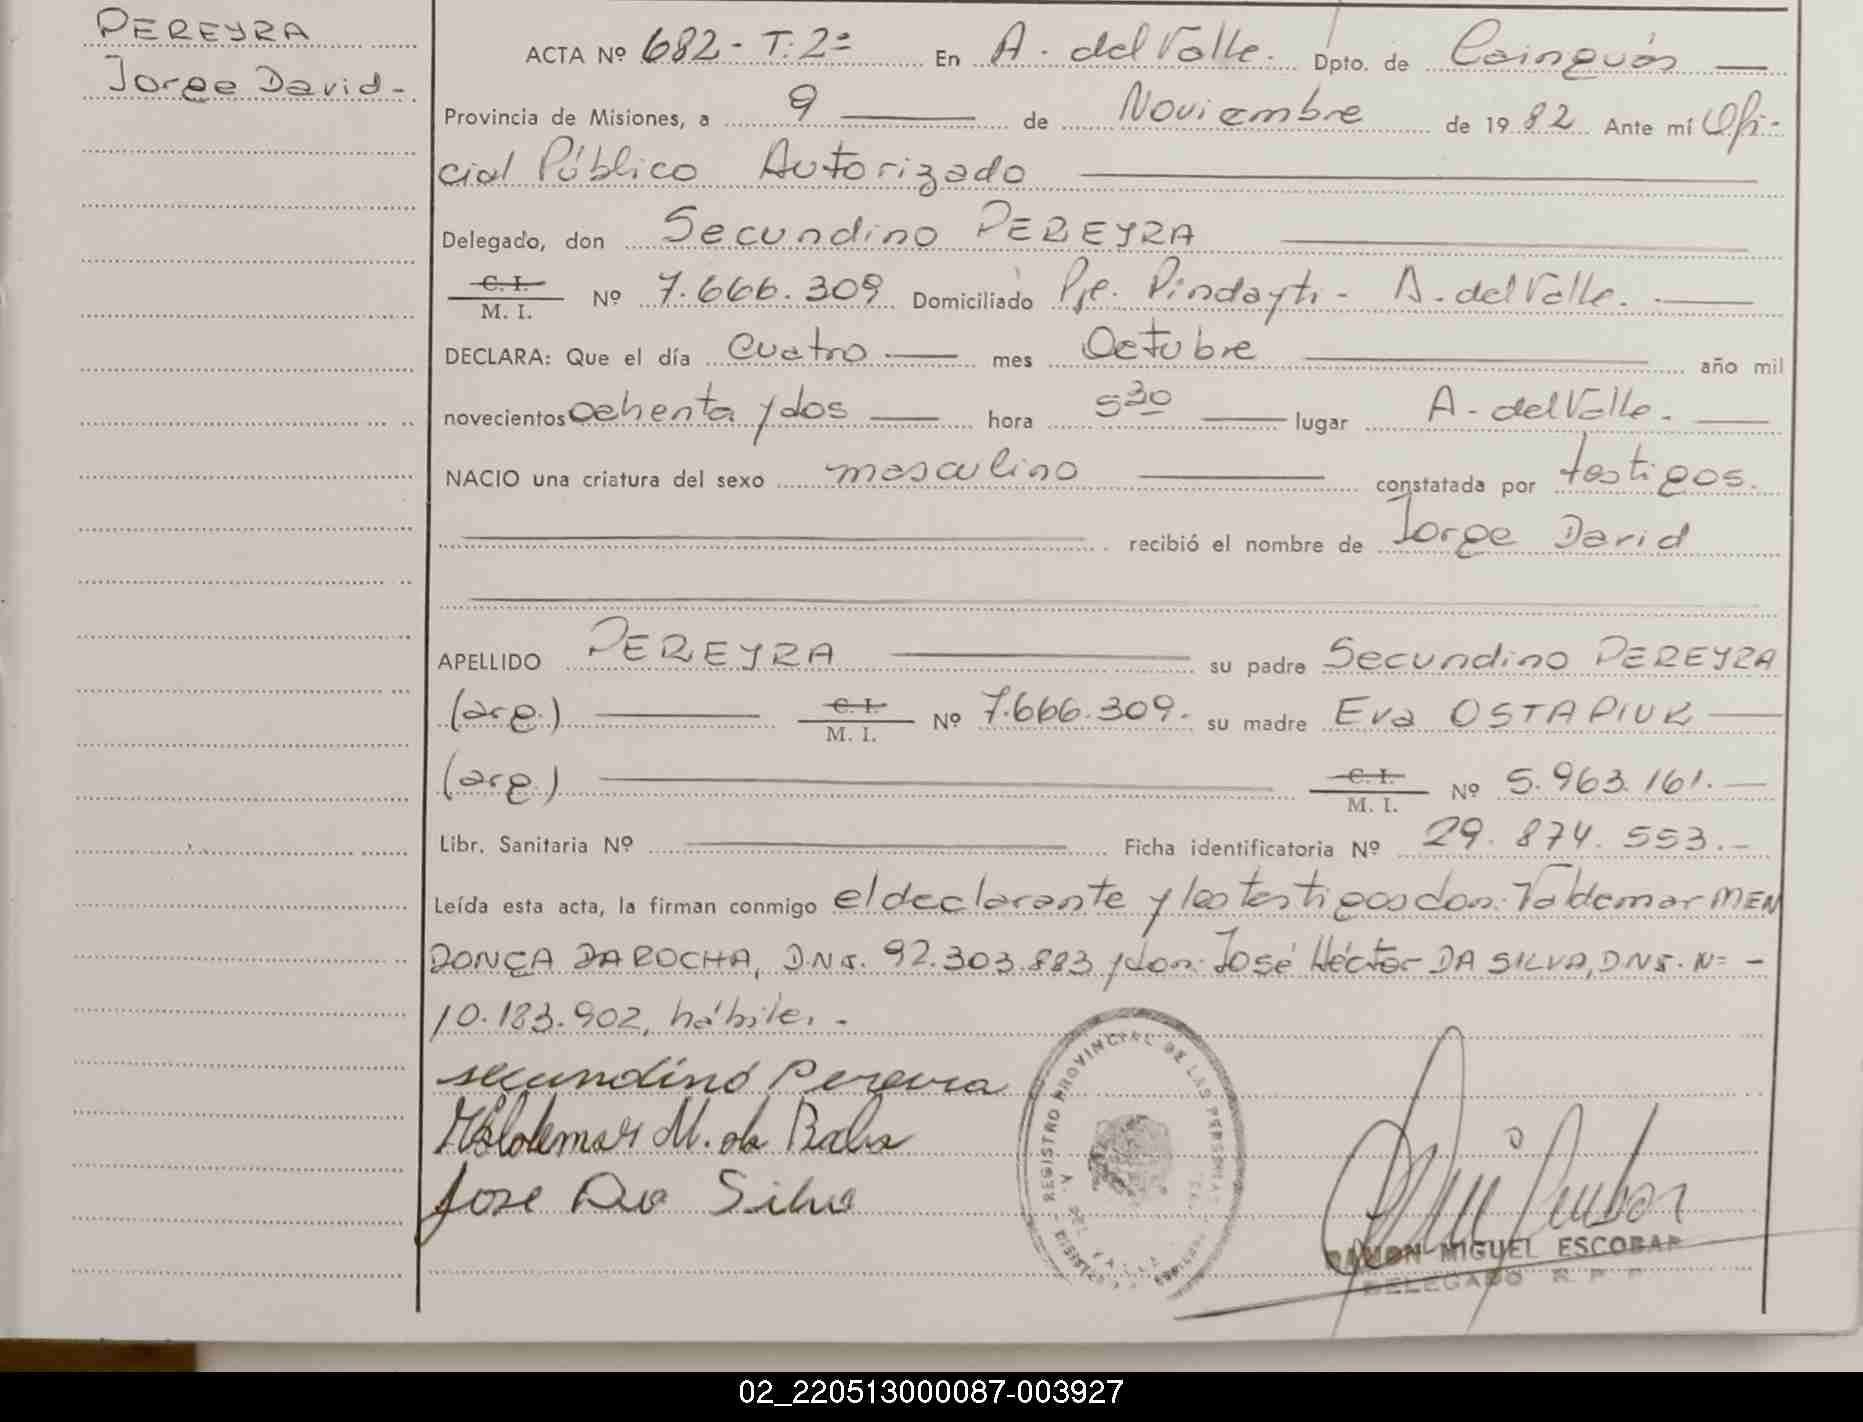 PEREYRA
Jorge David-
ACTA Nº 682- T: 2ª En A. del Valle. Dpto. de Cainguás
Provincia de Misiones, a 9 de Noviembre de 1982 Ante mí Ofi-
cial Público Autorizado
Delegado, don Secundino PEREYRA
C. I. / M. I. Nº 7.666.309 Domiciliado Pje. Pindayti- A. del Valle.
DECLARA: Que el día cuatro mes Octubre año mil
novecientos ochenta y dos hora 5³⁰ lugar A. del Valle.
NACIO una criatura del sexo masculino constatada por testigos.
recibió el nombre de Jorge David
APELLIDO PEREYRA su padre Secundino PEREYRA
(arg.) C. I. / M. I. Nº 7.666.309. su madre Eva OSTAPIUK
(arg.) C. I. / M. I. Nº 5.963.161.
Libr. Sanitaria Nº Ficha identificatoria Nº 29.874.553.-
Leída esta acta, la firman conmigo el declarante y los testigos don: Valdemar MEN
DONÇA DA ROCHA, DNI. 92.303.883 y don: José Héctor DA SILVA, DNI. Nº -
10.183.902, hábiles.-
secundino Pereira
Valdemar M. da
Jose Da Silva
REGISTRO PROVINCIAL DE LAS PERSONAS
RAMON MIGUEL ESCOBAR
DELEGADO R. P. P.
02_220513000087-003927